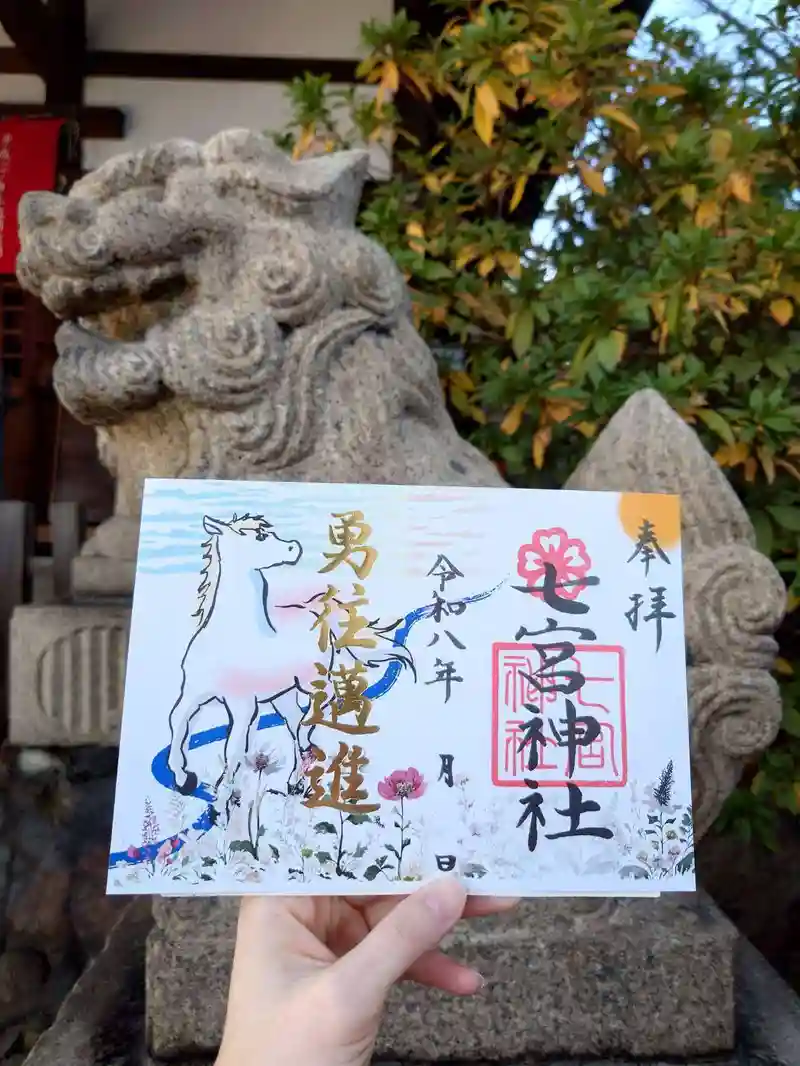 奉拝
七宮神社
七宮神社
令和八年 月 日
勇往邁進